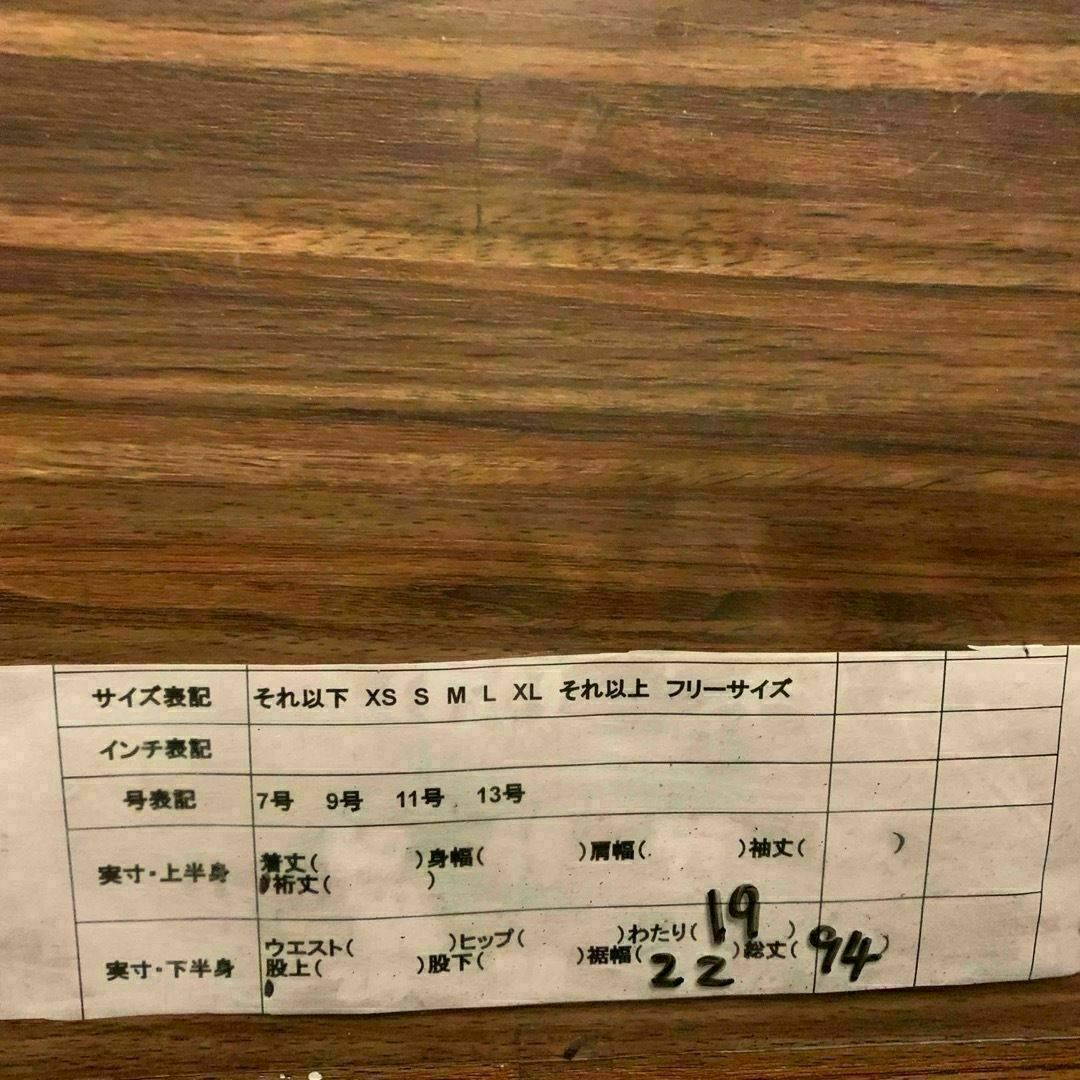 サイズ表記 それ以下 XS S M L XL それ以上 フリーサイズ
インチ表記
号表記 7号 9号 11号 13号
実寸・上半身 着丈( )身幅( )肩幅( )袖丈( )
裄丈( )
実寸・下半身 ウエスト( )ヒップ( )わたり(19)
股上( )股下( )裾幅(22)総丈(94)